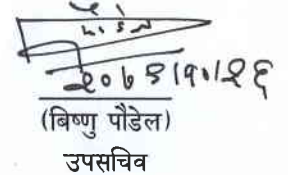 २०७३।१०।२६
(बिष्णु पौडेल)
उपसचिव